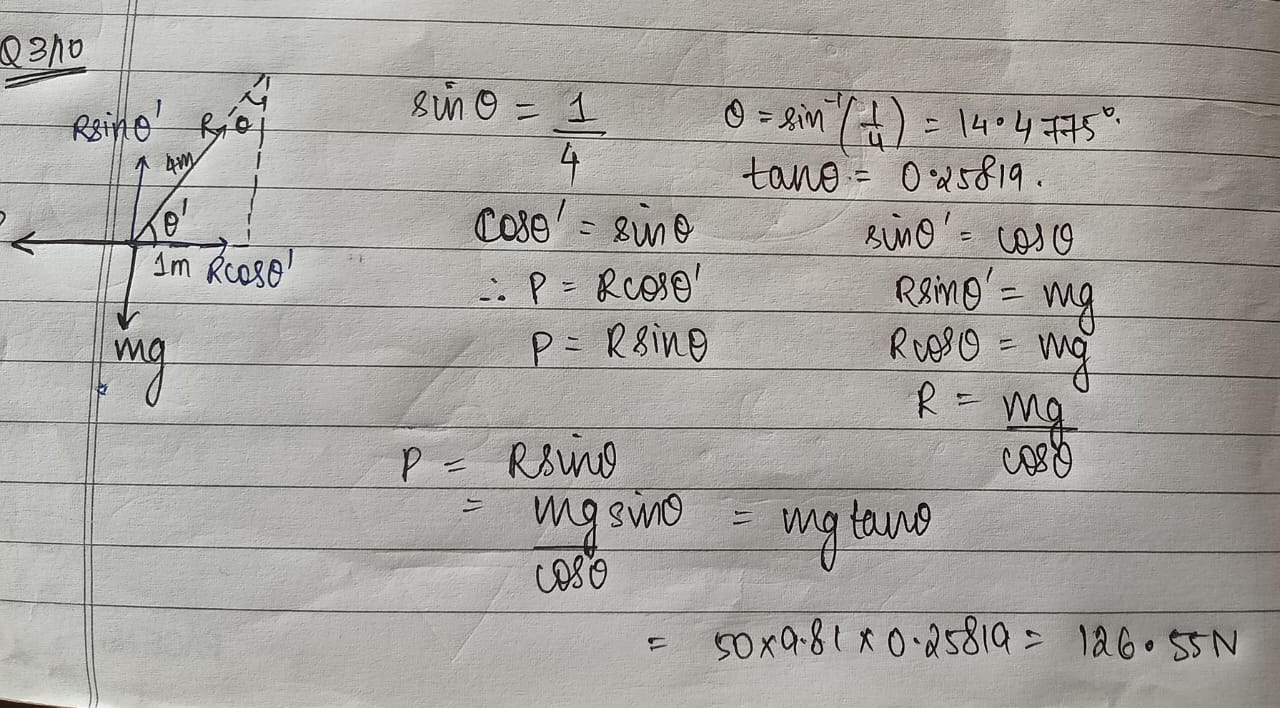 Q3/10
Rsinθ'
R
θ
4m
θ'
1m Rcosθ'
mg
sinθ = 1/4
θ = sin⁻¹(1/4) = 14.4775°.
tanθ = 0.25819.
cosθ' = sinθ
sinθ' = cosθ
∴ P = Rcosθ'
Rsinθ' = mg
P = Rsinθ
Rcosθ = mg
R = mg/cosθ
P = Rsinθ
= mgsinθ/cosθ = mgtanθ
= 50×9.81×0.25819 = 126.55N